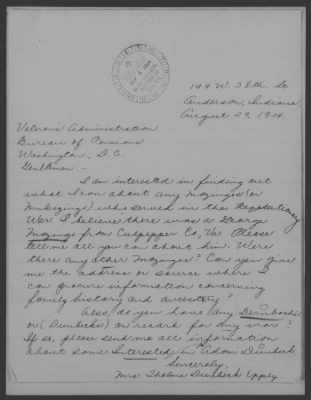 144 W. 38th. St.
Anderson, Indiana,
August 29, 1934.
Veterans Administration
Bureau of Pensions
Washington, D.C.
Gentlemen:-
I am interested in finding out
about any Mozingos (or
) who served in the Revolutionary
War. I believe there was a George
Mozingo from Culpepper Co, Va. Please
tell me all you can about him. Were
there any other Mozingos? Can you give
me the address or source where I
can procure information concerning
family history and ancestry?
Also, do you have any
or (Dierbecks) on record for any war?
If so, please send me all information
about same. Interested in Adam Dierbeck
Sincerely,
Mrs. Thelma Dierbeck